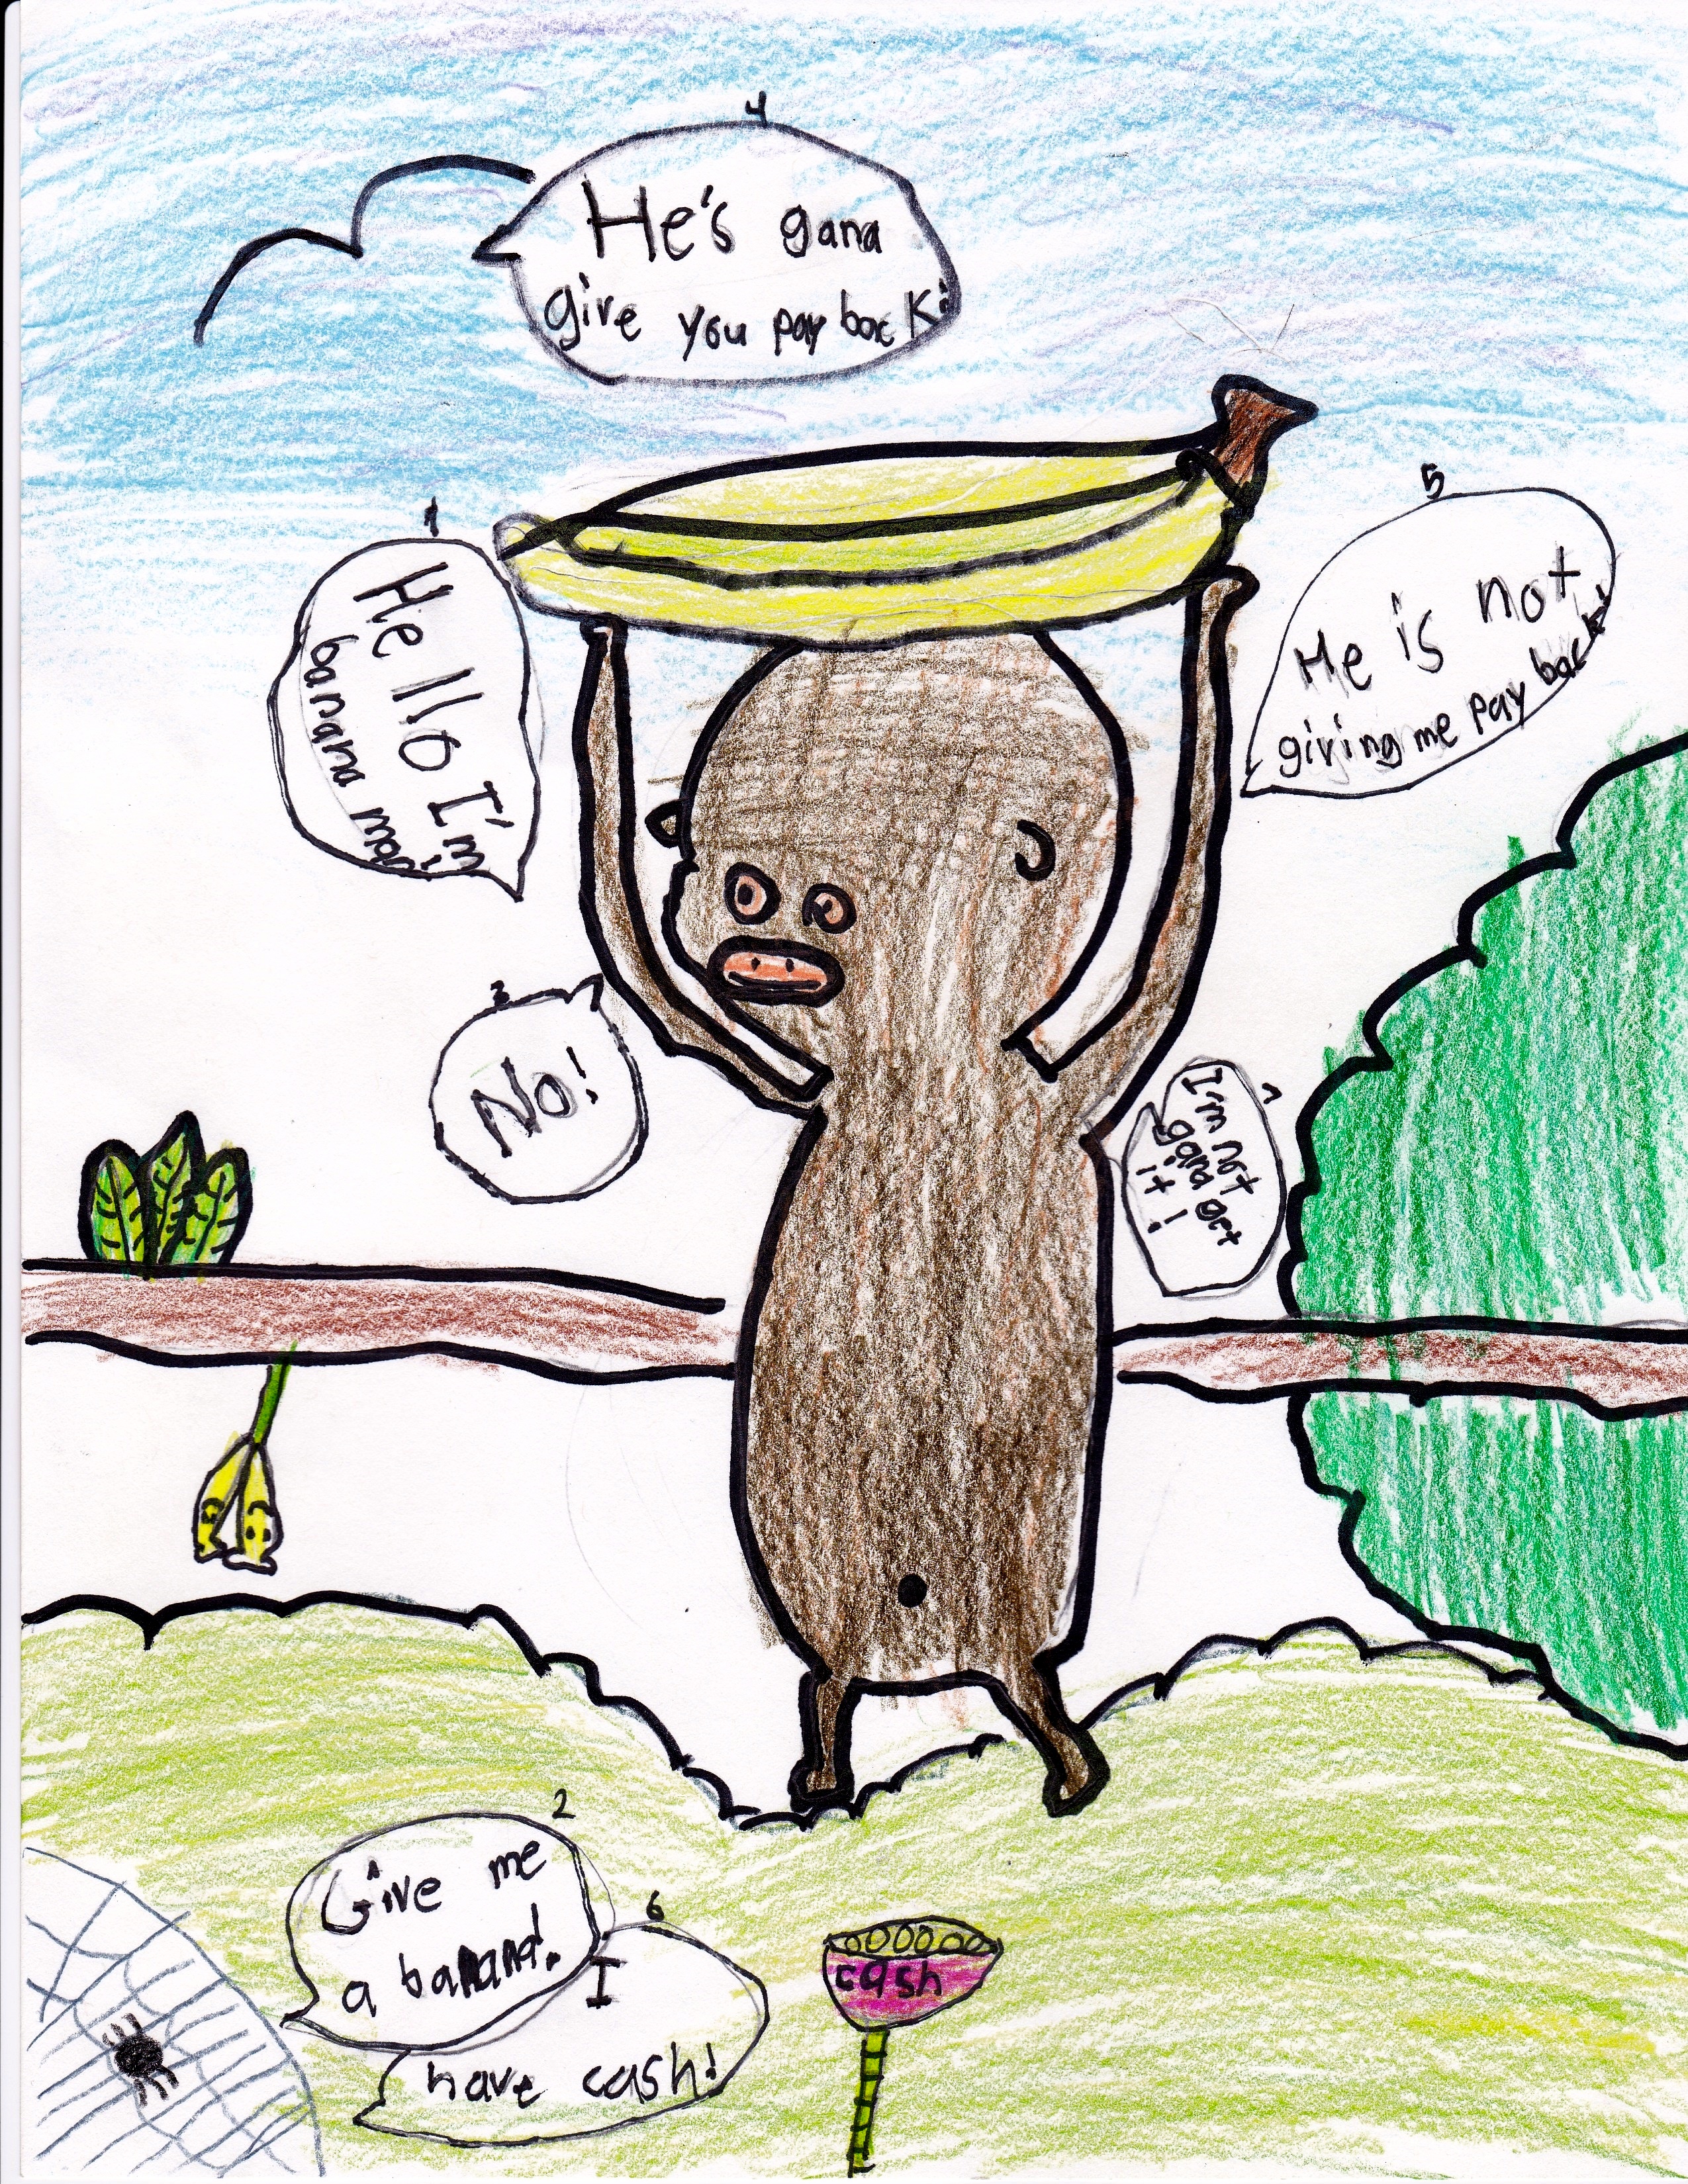 1
Hello I'm
banana
2
Give me
a banana!
3
No!
4
He's gana
give you pay back!
5
He is not
giving me pay back!
6
I
have cash!
7
I'm not
gana get
it!
cash